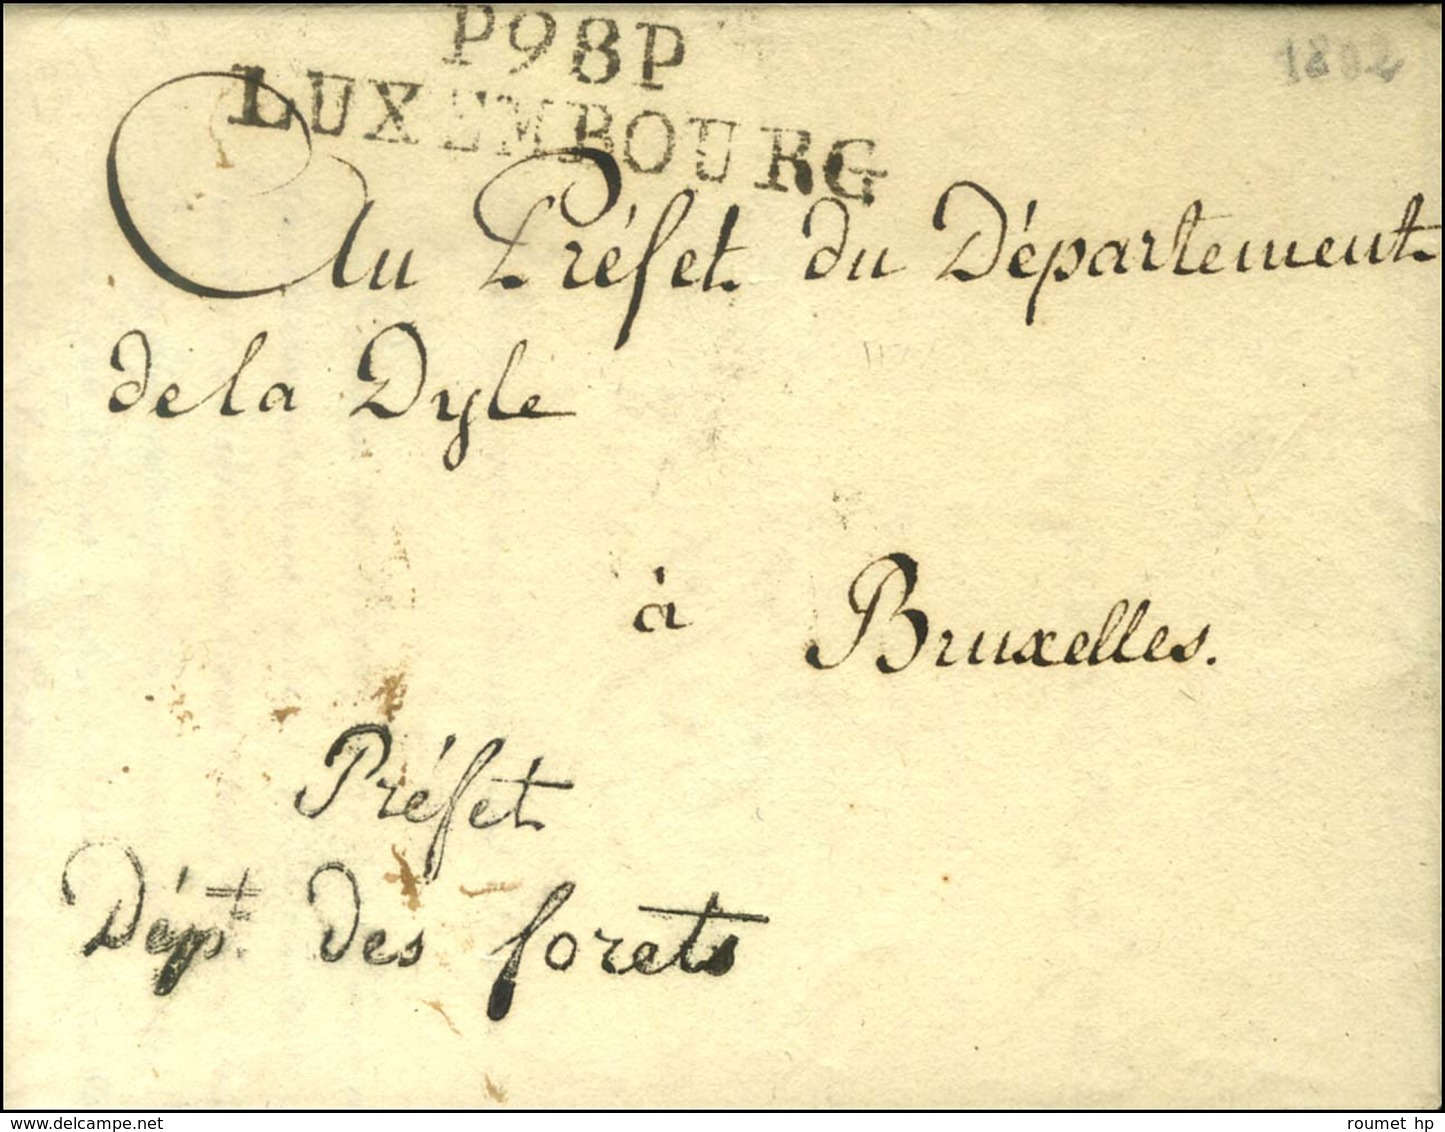 P98P
LUXEMBOURG
1802
Au Préfet du Département
de la Dyle
à Bruxelles.
Préfet
Dépt. des forets
roumet hp